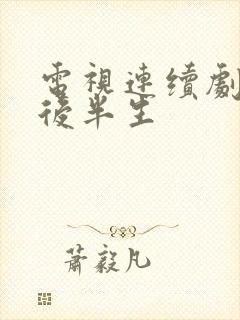 電視連續劇
後半生
蕭毅凡